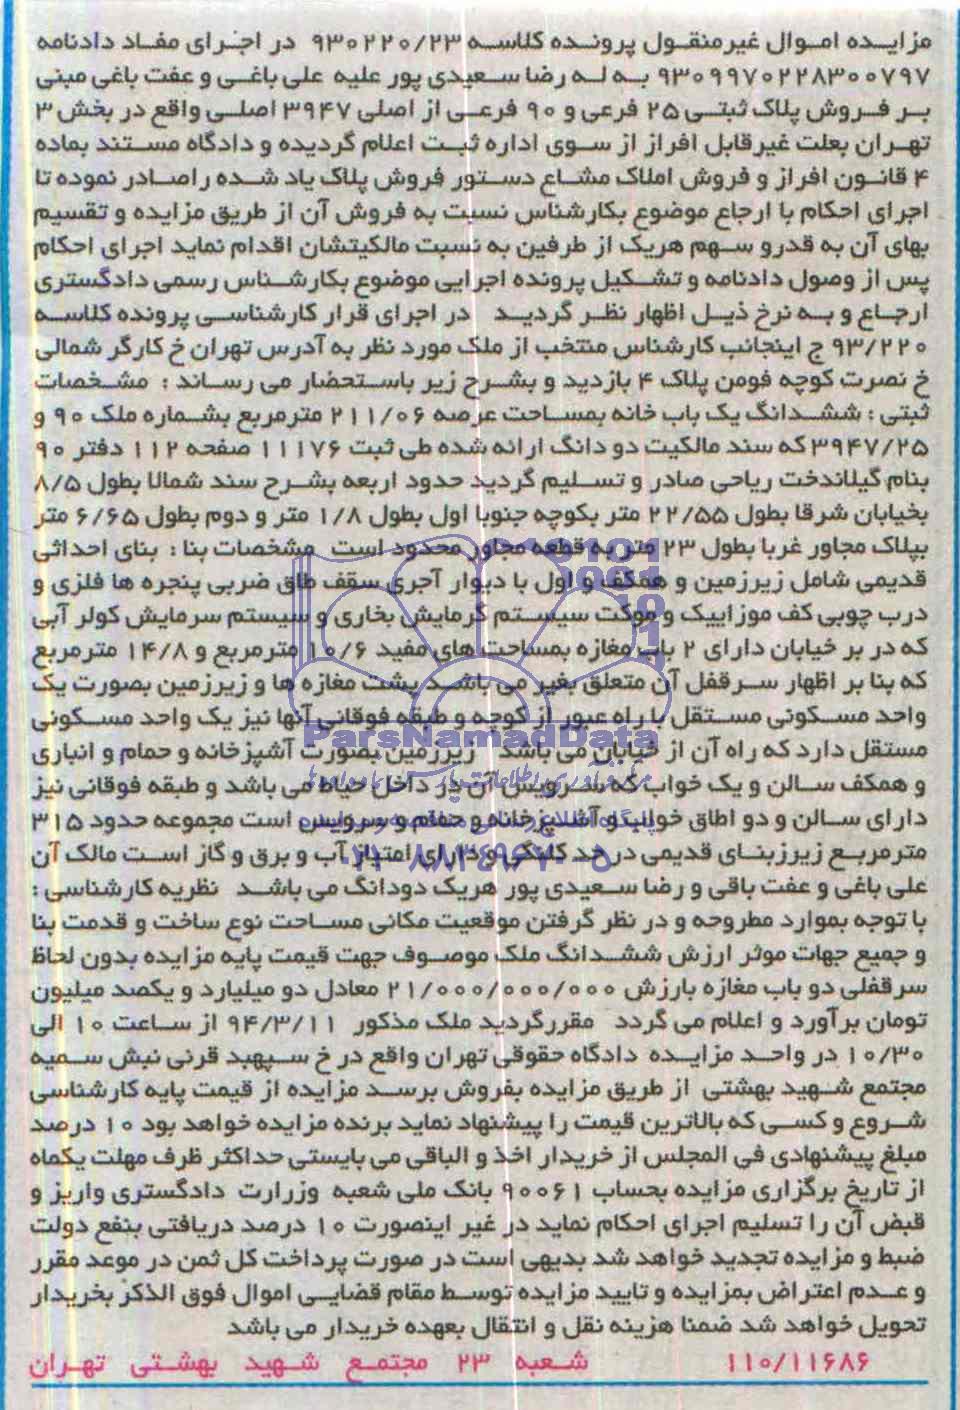 مزایده اموال غیرمنقول پرونده کلاسه ۹۳۰۲۲۰/۲۳ در اجرای مفاد دادنامه
۹۳۰۹۹۷۰۲۲۸۳۰۰۷۹۷ به له رضا سعیدی پور علیه علی باغی و عفت باغی مبنی
بر فروش پلاک ثبتی ۲۵ فرعی و ۹۰ فرعی از اصلی ۳۹۴۷ اصلی واقع در بخش ۳
تهران بعلت غیرقابل افراز از سوی اداره ثبت اعلام گردیده و دادگاه مستند بماده
۴ قانون افراز و فروش املاک مشاع دستور فروش پلاک یاد شده را صادر نموده تا
اجرای احکام با ارجاع موضوع بکارشناس نسبت به فروش آن از طریق مزایده و تقسیم
بهای آن به قدرو سهم هریک از طرفین به نسبت مالکیتشان اقدام نماید اجرای احکام
پس از وصول دادنامه و تشکیل پرونده اجرایی موضوع بکارشناس رسمی دادگستری
ارجاع و به نرخ ذیل اظهار نظر گردید در اجرای قرار کارشناسی پرونده کلاسه
۹۳/۲۲۰ ج اینجانب کارشناس منتخب از ملک مورد نظر به آدرس تهران خ کارگر شمالی
خ نصرت کوچه فومن پلاک ۴ بازدید و بشرح زیر باستحضار می رساند : مشخصات
ثبتی : ششدانگ یک باب خانه بمساحت عرصه ۲۱۱/۰۶ مترمربع بشماره ملک ۹۰ و
۳۹۴۷/۲۵ که سند مالکیت دو دانگ ارائه شده طی ثبت ۱۱۱۷۶ صفحه ۱۱۲ دفتر ۹۰
بنام گیلاندخت ریاحی صادر و تسلیم گردید حدود اربعه بشرح سند شمالا بطول ۸/۵
بخیابان شرقا بطول ۲۲/۵۵ متر بکوچه جنوبا اول بطول ۱/۸ متر و دوم بطول ۶/۶۵ متر
بپلاک مجاور غربا بطول ۲۳ متر به قطعه مجاور محدود است مشخصات بنا : بنای احداثی
قدیمی شامل زیرزمین و همکف و اول با دیوار آجری سقف طاق ضربی پنجره ها فلزی و
درب چوبی کف موزاییک و موکت سیستم گرمایش بخاری و سیستم سرمایش کولر آبی
که در بر خیابان دارای ۲ باب مغازه بمساحت های مفید ۱۰/۶ مترمربع و ۱۴/۸ مترمربع
که بنا بر اظهار سرقفل آن متعلق بغیر می باشد پشت مغازه ها و زیرزمین بصورت یک
واحد مسکونی مستقل با راه عبور از کوچه و طبقه فوقانی آنها نیز یک واحد مسکونی
مستقل دارد که راه آن از خیابان می باشد زیرزمین بصورت آشپزخانه و حمام و انباری
و همکف سالن و یک خواب که سرویس آن در داخل حیاط می باشد و طبقه فوقانی نیز
دارای سالن و دو اطاق خواب و آشپزخانه و حمام و سرویس است مجموعه حدود ۳۱۵
مترمربع زیرزبنای قدیمی در حد کلنگی و دارای امتیاز آب و برق و گاز است مالک آن
علی باغی و عفت باقی و رضا سعیدی پور هریک دودانگ می باشد نظریه کارشناسی :
با توجه بموارد مطروحه و در نظر گرفتن موقعیت مکانی مساحت نوع ساخت و قدمت بنا
و جمیع جهات موثر ارزش ششدانگ ملک موصوف جهت قیمت پایه مزایده بدون لحاظ
سرقفلی دو باب مغازه بارزش ۲۱/۰۰۰/۰۰۰/۰۰۰ معادل دو میلیارد و یکصد میلیون
تومان برآورد و اعلام می گردد مقررگردید ملک مذکور ۹۴/۳/۱۱ از ساعت ۱۰ الی
۱۰/۳۰ در واحد مزایده دادگاه حقوقی تهران واقع در خ سپهبد قرنی نبش سمیه
مجتمع شهید بهشتی از طریق مزایده بفروش برسد مزایده از قیمت پایه کارشناسی
شروع و کسی که بالاترین قیمت را پیشنهاد نماید برنده مزایده خواهد بود ۱۰ درصد
مبلغ پیشنهادی فی المجلس از خریدار اخذ و الباقی می بایستی حداکثر ظرف مهلت یکماه
از تاریخ برگزاری مزایده بحساب ۹۰۰۶۱ بانک ملی شعبه وزرارت دادگستری واریز و
قبض آن را تسلیم اجرای احکام نماید در غیر اینصورت ۱۰ درصد دریافتی بنفع دولت
ضبط و مزایده تجدید خواهد شد بدیهی است در صورت پرداخت کل ثمن در موعد مقرر
و عدم اعتراض بمزایده و تایید مزایده توسط مقام قضایی اموال فوق الذکر بخریدار
تحویل خواهد شد ضمنا هزینه نقل و انتقال بعهده خریدار می باشد
۱۱۰/۱۱۶۸۶ شعبه ۲۳ مجتمع شهید بهشتی تهران
ParsNamadData